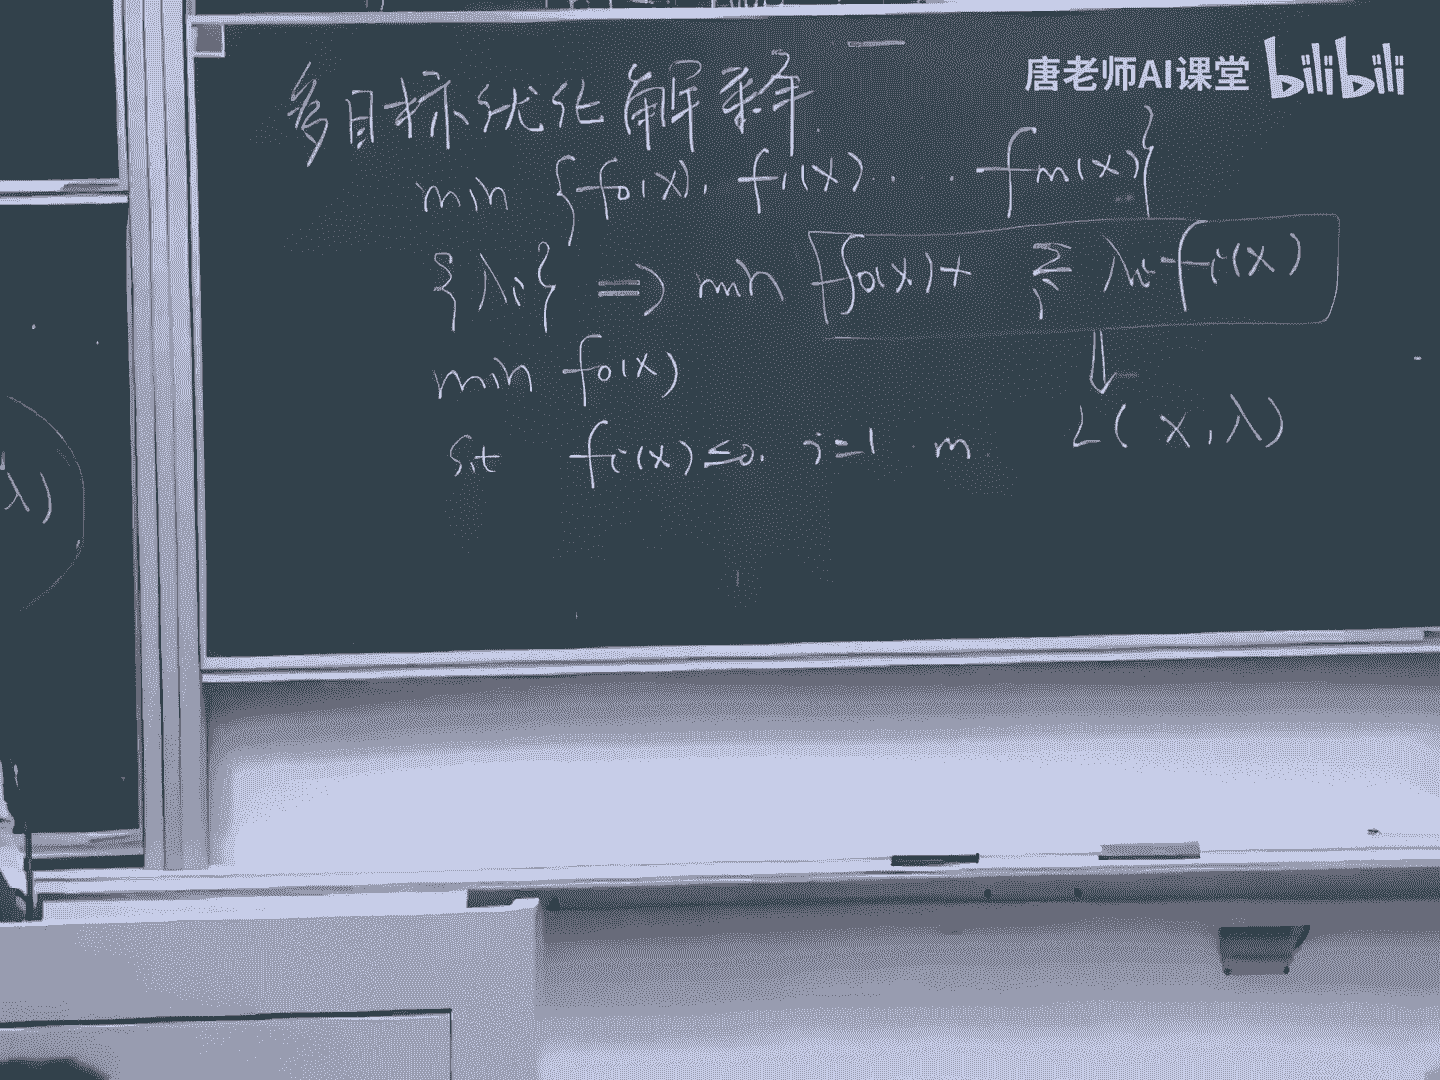 唐老师AI课堂 bilibili
多目标优化解释
min {f₀(x), f₁(x) .... fm(x)}
{λi} ⇒ min f₀(x) + Σi λi fi(x)
min f₀(x)
s.t fi(x) ≤ 0. i=1 m.
L(x,λ)
λ)